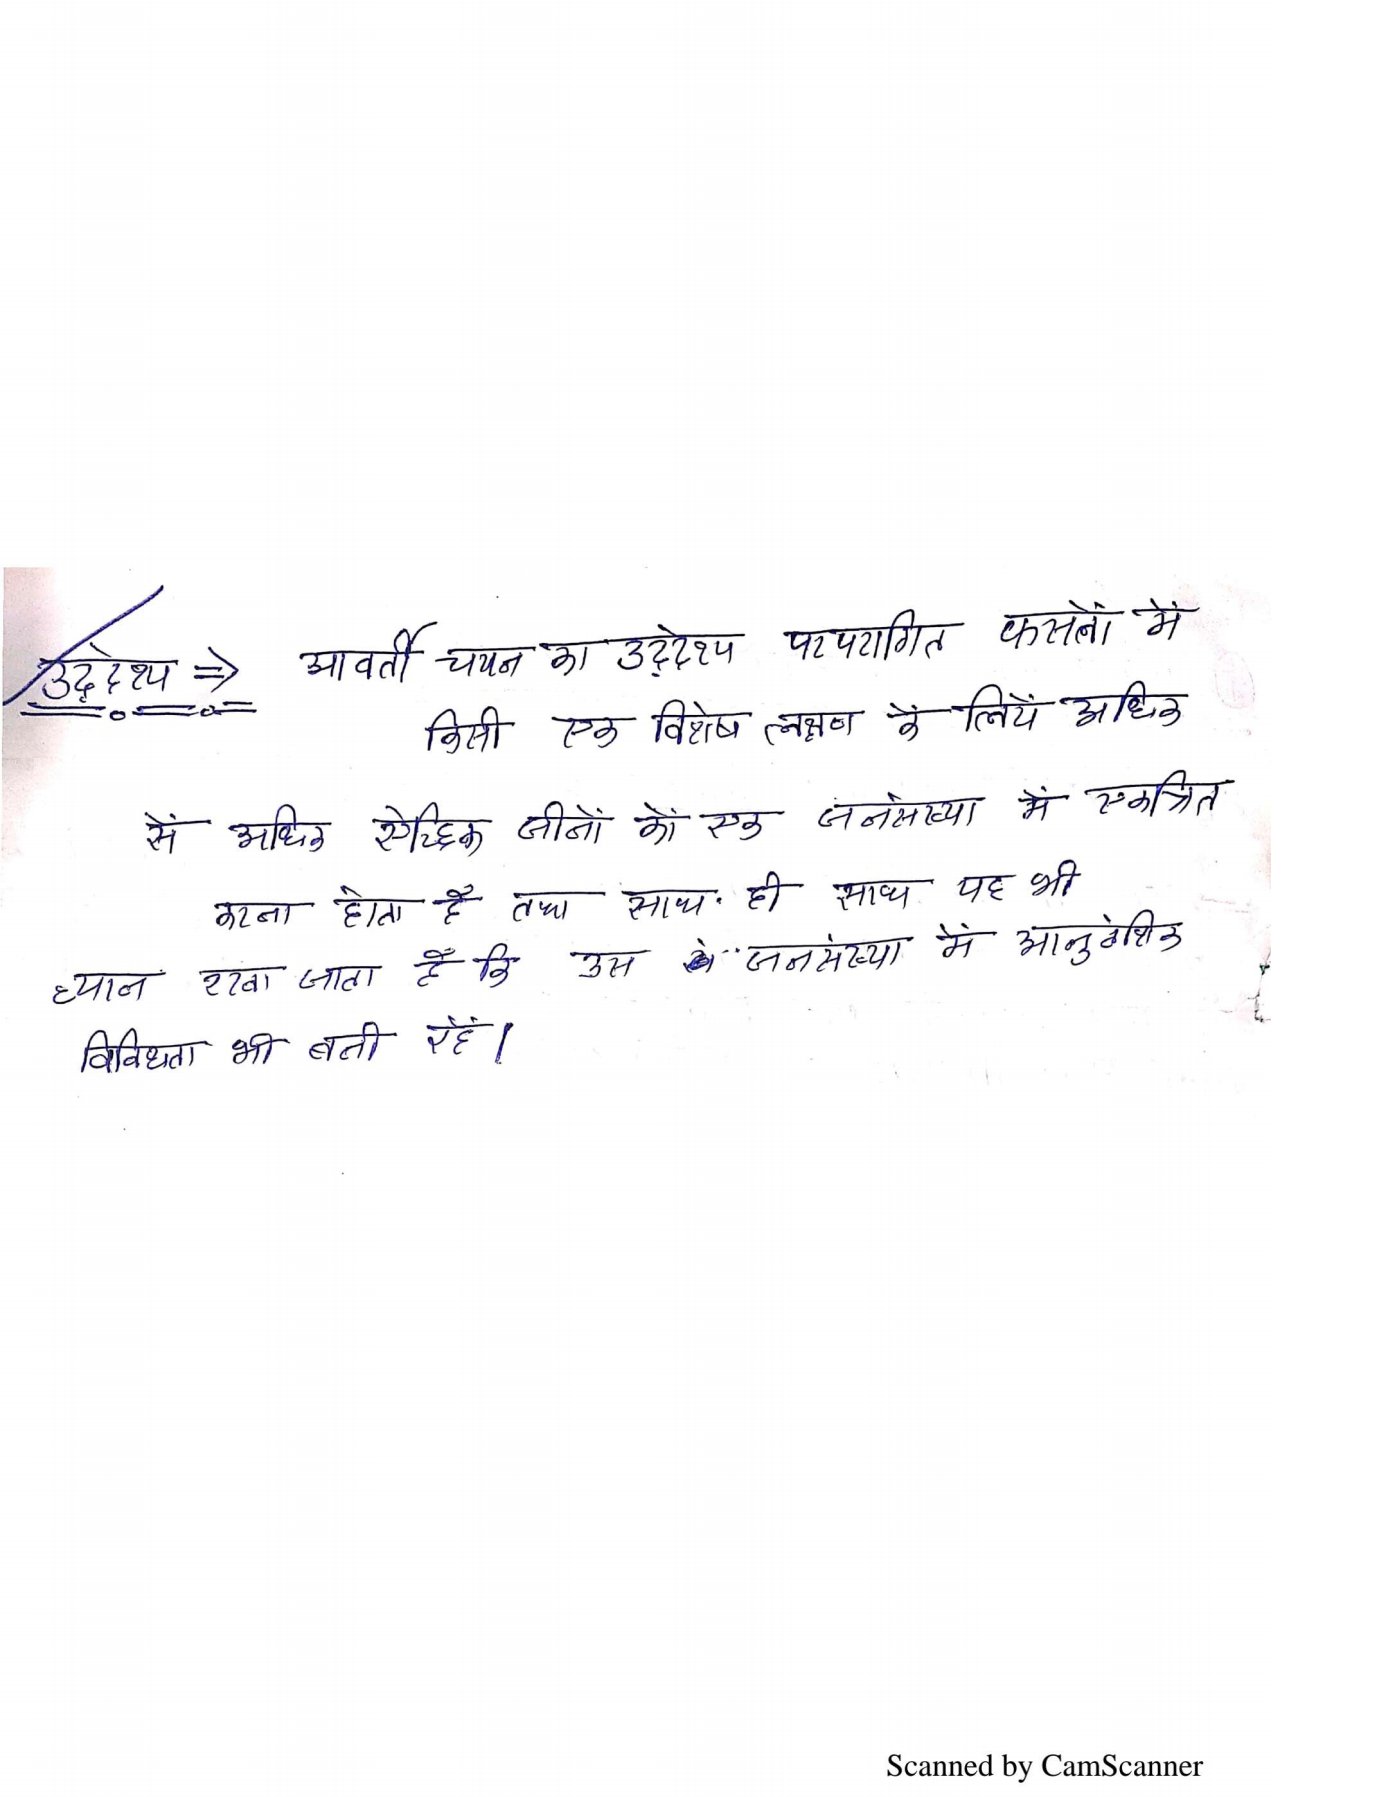 उद्देश्य ⇒ आवर्ती चयन का उद्देश्य परपरागित फसलों में
किसी एक विशेष लक्षण के लियें अधिक
सें अधिक ऐच्छिक जीनों कों एक जनसंख्या में एकत्रित
करना होता हैं तथा साथ. ही साथ यह भी
ध्यान रखा जाता हैं कि उस जनसंख्या में आनुवंशिक
विविधता भी बनी रहें।
Scanned by CamScanner